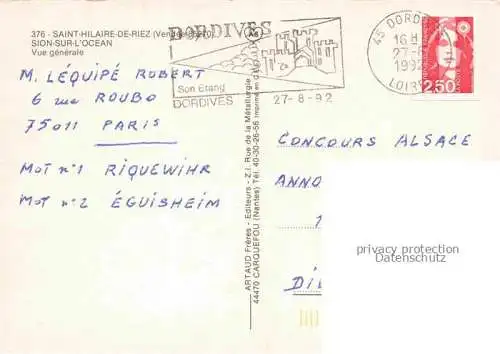 376 - SAINT-HILAIRE-DE-RIEZ (Vendée 85270)
SION-SUR-L'OCEAN
Vue générale
BORDIVES
A6
Son Etang
DORDIVES
27-8-92
45 DORDIVES
16 H
27-8
1992
LOIRET
2,50
M. LÉQUIPÉ ROBERT
6 rue ROUBO
75011 PARIS
MOT n°1 RIQUEWIHR
MOT n°2 ÉGUISHEIM
ARTAUD Frères - Editeurs - Z.I. Rue de la Métallurgie
44470 CARQUEFOU (Nantes) Tél. 40-30-26-56
CONCOURS ALSACE
ANNO
1
DI
privacy protection
Datenschutz